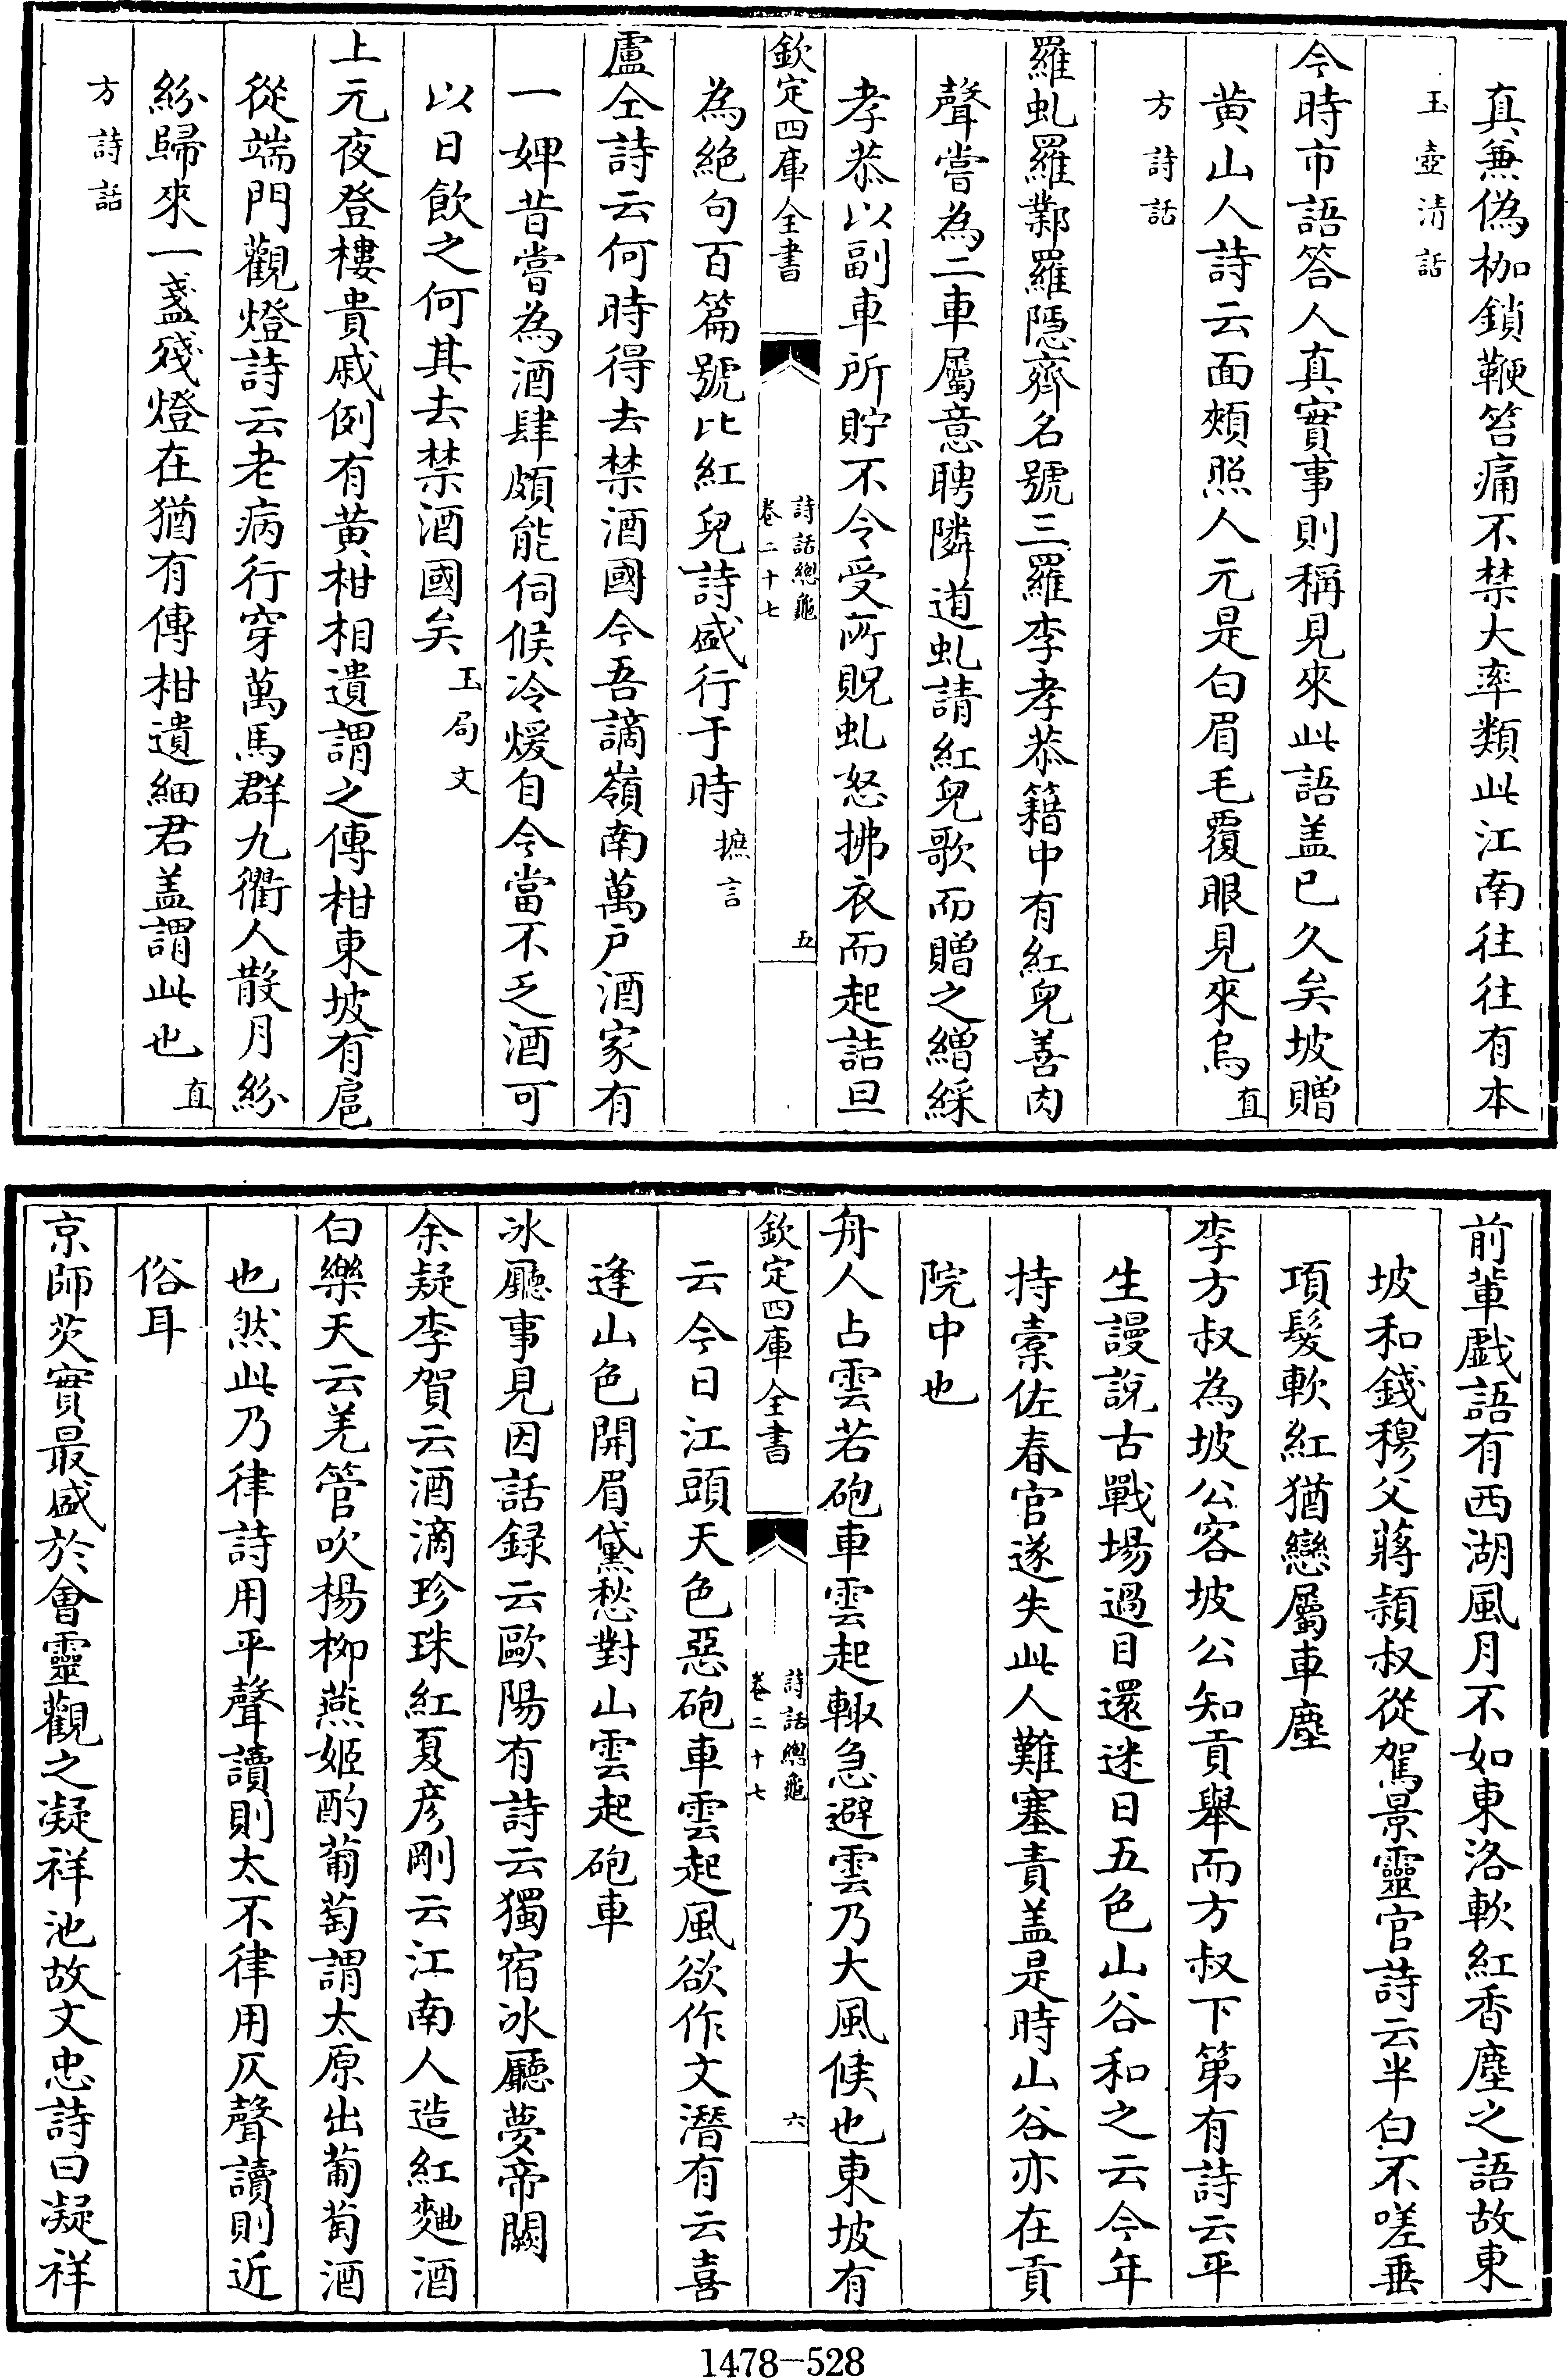 真兼偽枷鎖鞭笞痛不禁大率類此江南往往有本
玉壺清話
今時市語答人真實事則稱見來此語盖已久矣坡贈
黄山人詩云面頰照人元是白眉毛覆眼見來烏直
方詩話
羅虬羅鄴羅隱齊名號三羅李孝恭籍中有紅兒善肉
聲嘗為二車屬意聘隣道虬請紅兒歌而贈之繒綵
孝恭以副車所貯不令受所貺虬怒拂衣而起詰旦
欽定四庫全書
詩話總龜
卷二十七
五
為絶句百篇號比紅兒詩盛行于時摭言
盧仝詩云何時得去禁酒國今吾謫嶺南萬戸酒家有
一婢昔嘗為酒肆頗能伺候冷煖自今當不乏酒可
以日飲之何其去禁酒國矣玉局文
上元夜登樓貴戚例有黄柑相遺謂之傳柑東坡有扈
從端門觀燈詩云老病行穿萬馬群九衢人散月紛
紛歸來一盞殘燈在猶有傳柑遺細君盖謂此也直
方詩話
前輩戯語有西湖風月不如東洛軟紅香塵之語故東
坡和錢穆父蔣頴叔從駕景靈官詩云半白不嗟垂
項髮軟紅猶戀屬車塵
李方叔為坡公客坡公知貢舉而方叔下第有詩云平
生謾說古戰場過目還迷日五色山谷和之云今年
持橐佐春官遂失此人難塞責盖是時山谷亦在貢
院中也
舟人占雲若砲車雲起輙急避雲乃大風候也東坡有
欽定四庫全書
詩話總龜
卷二十七
六
云今日江頭天色惡砲車雲起風欲作文潛有云喜
逢山色開眉黛愁對山雲起砲車
冰廳事見因話録云歐陽有詩云獨宿冰廳夢帝闕
余疑李賀云酒滴珍珠紅夏彦剛云江南人造紅麯酒
白樂天云羌管吹楊栁燕姬酌葡萄謂太原出葡萄酒
也然此乃律詩用平聲讀則太不律用仄聲讀則近
俗耳
京師芡實最盛於會靈觀之凝祥池故文忠詩曰凝祥
1478-528